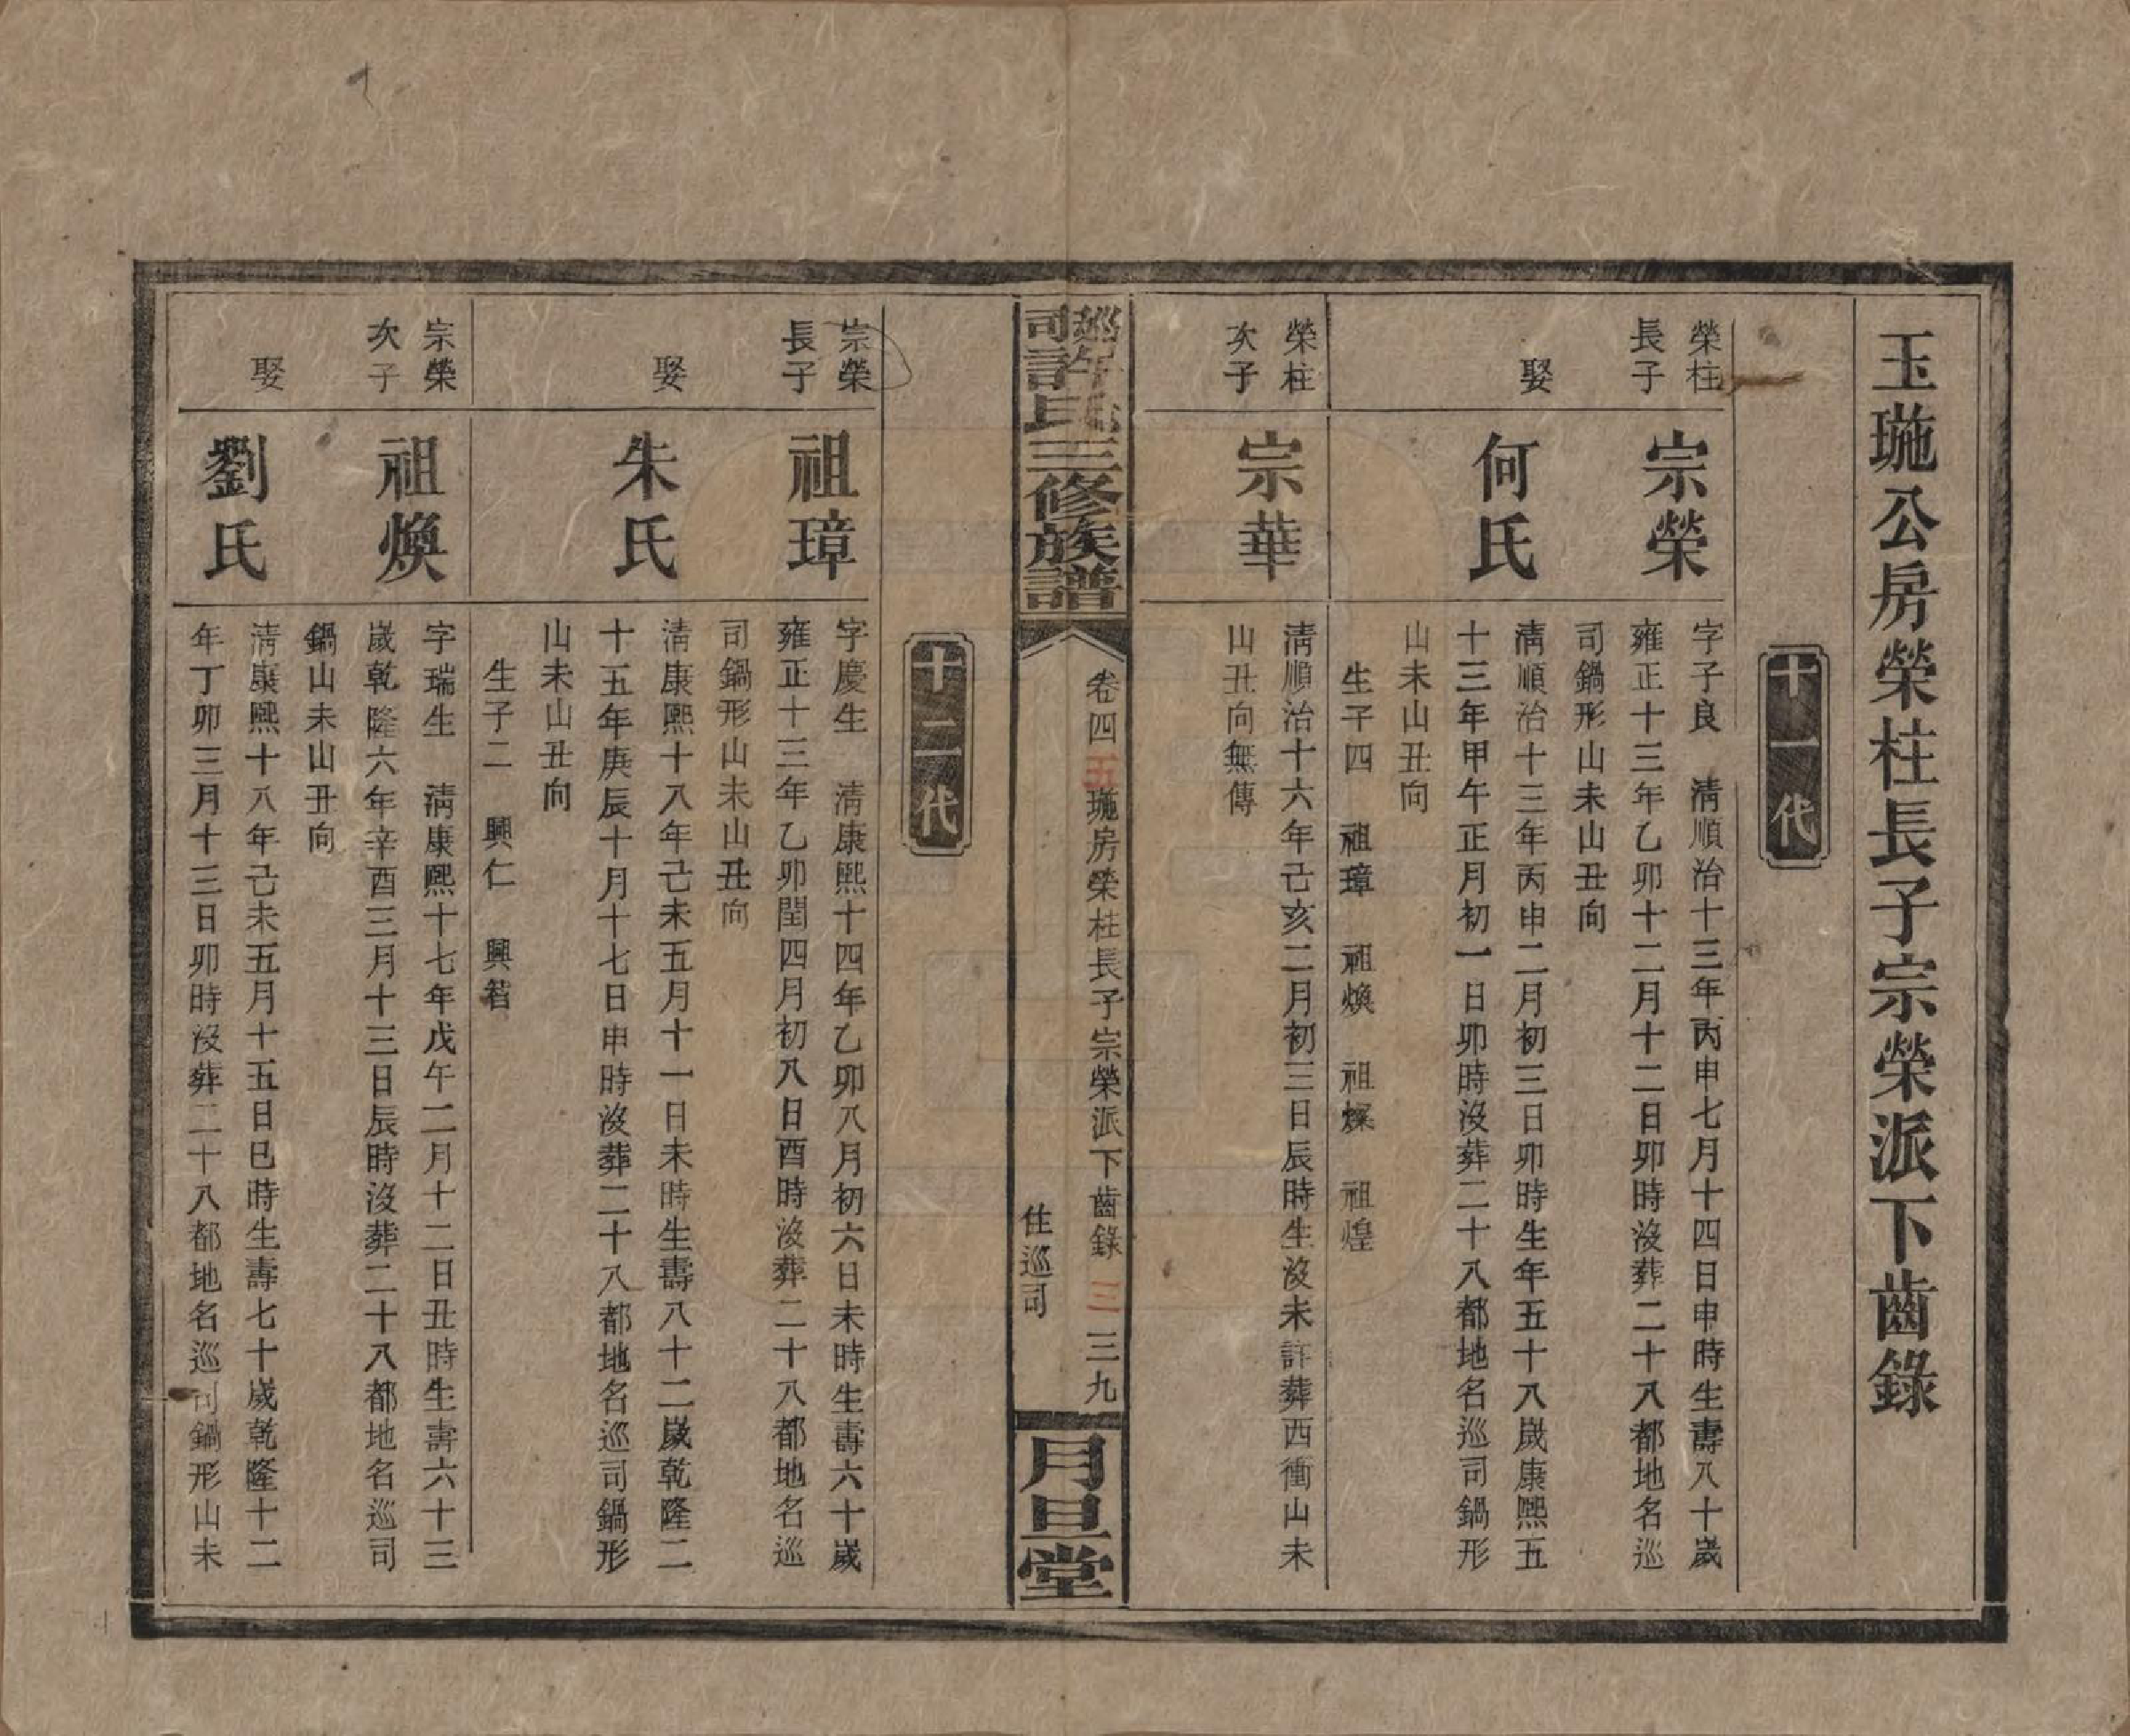 玉珤公房榮柱長子宗榮派下齒錄
十一代
榮柱
長子
宗榮
字子良 淸順治十三年丙申七月十四日申時生壽八十歲
雍正十三年乙卯十二月十二日卯時沒葬二十八都地名巡
司鍋形山未山丑向
娶
何氏
淸順治十三年丙申二月初三日卯時生年五十八歲康熙五
十三年甲午正月初一日卯時沒葬二十八都地名巡司鍋形
山未山丑向
生子四 祖璋 祖煥 祖燦 祖煌
榮柱
次子
宗華
淸順治十六年己亥二月初三日辰時生沒未詳葬西衝山未
山丑向無傳
巡司許氏三修族譜
卷四 玉珤房榮柱長子宗榮派下齒錄 三 三九
住巡司
月旦堂
十二代
宗榮
長子
祖璋
字慶生 淸康熙十四年乙卯八月初六日未時生壽六十歲
雍正十三年乙卯閏四月初八日酉時沒葬二十八都地名巡
司鍋形山未山丑向
娶
朱氏
淸康熙十八年己未五月十一日未時生壽八十二歲乾隆二
十五年庚辰十月十七日申時沒葬二十八都地名巡司鍋形
山未山丑向
生子二 興仁 興智
宗榮
次子
祖煥
字瑞生 淸康熙十七年戊午二月十二日丑時生壽六十三
歲乾隆六年辛酉三月十三日辰時沒葬二十八都地名巡司
鍋山未山丑向
娶
劉氏
淸康熙十八年己未五月十五日巳時生壽七十歲乾隆十二
年丁卯三月十三日卯時沒葬二十八都地名巡司鍋形山未